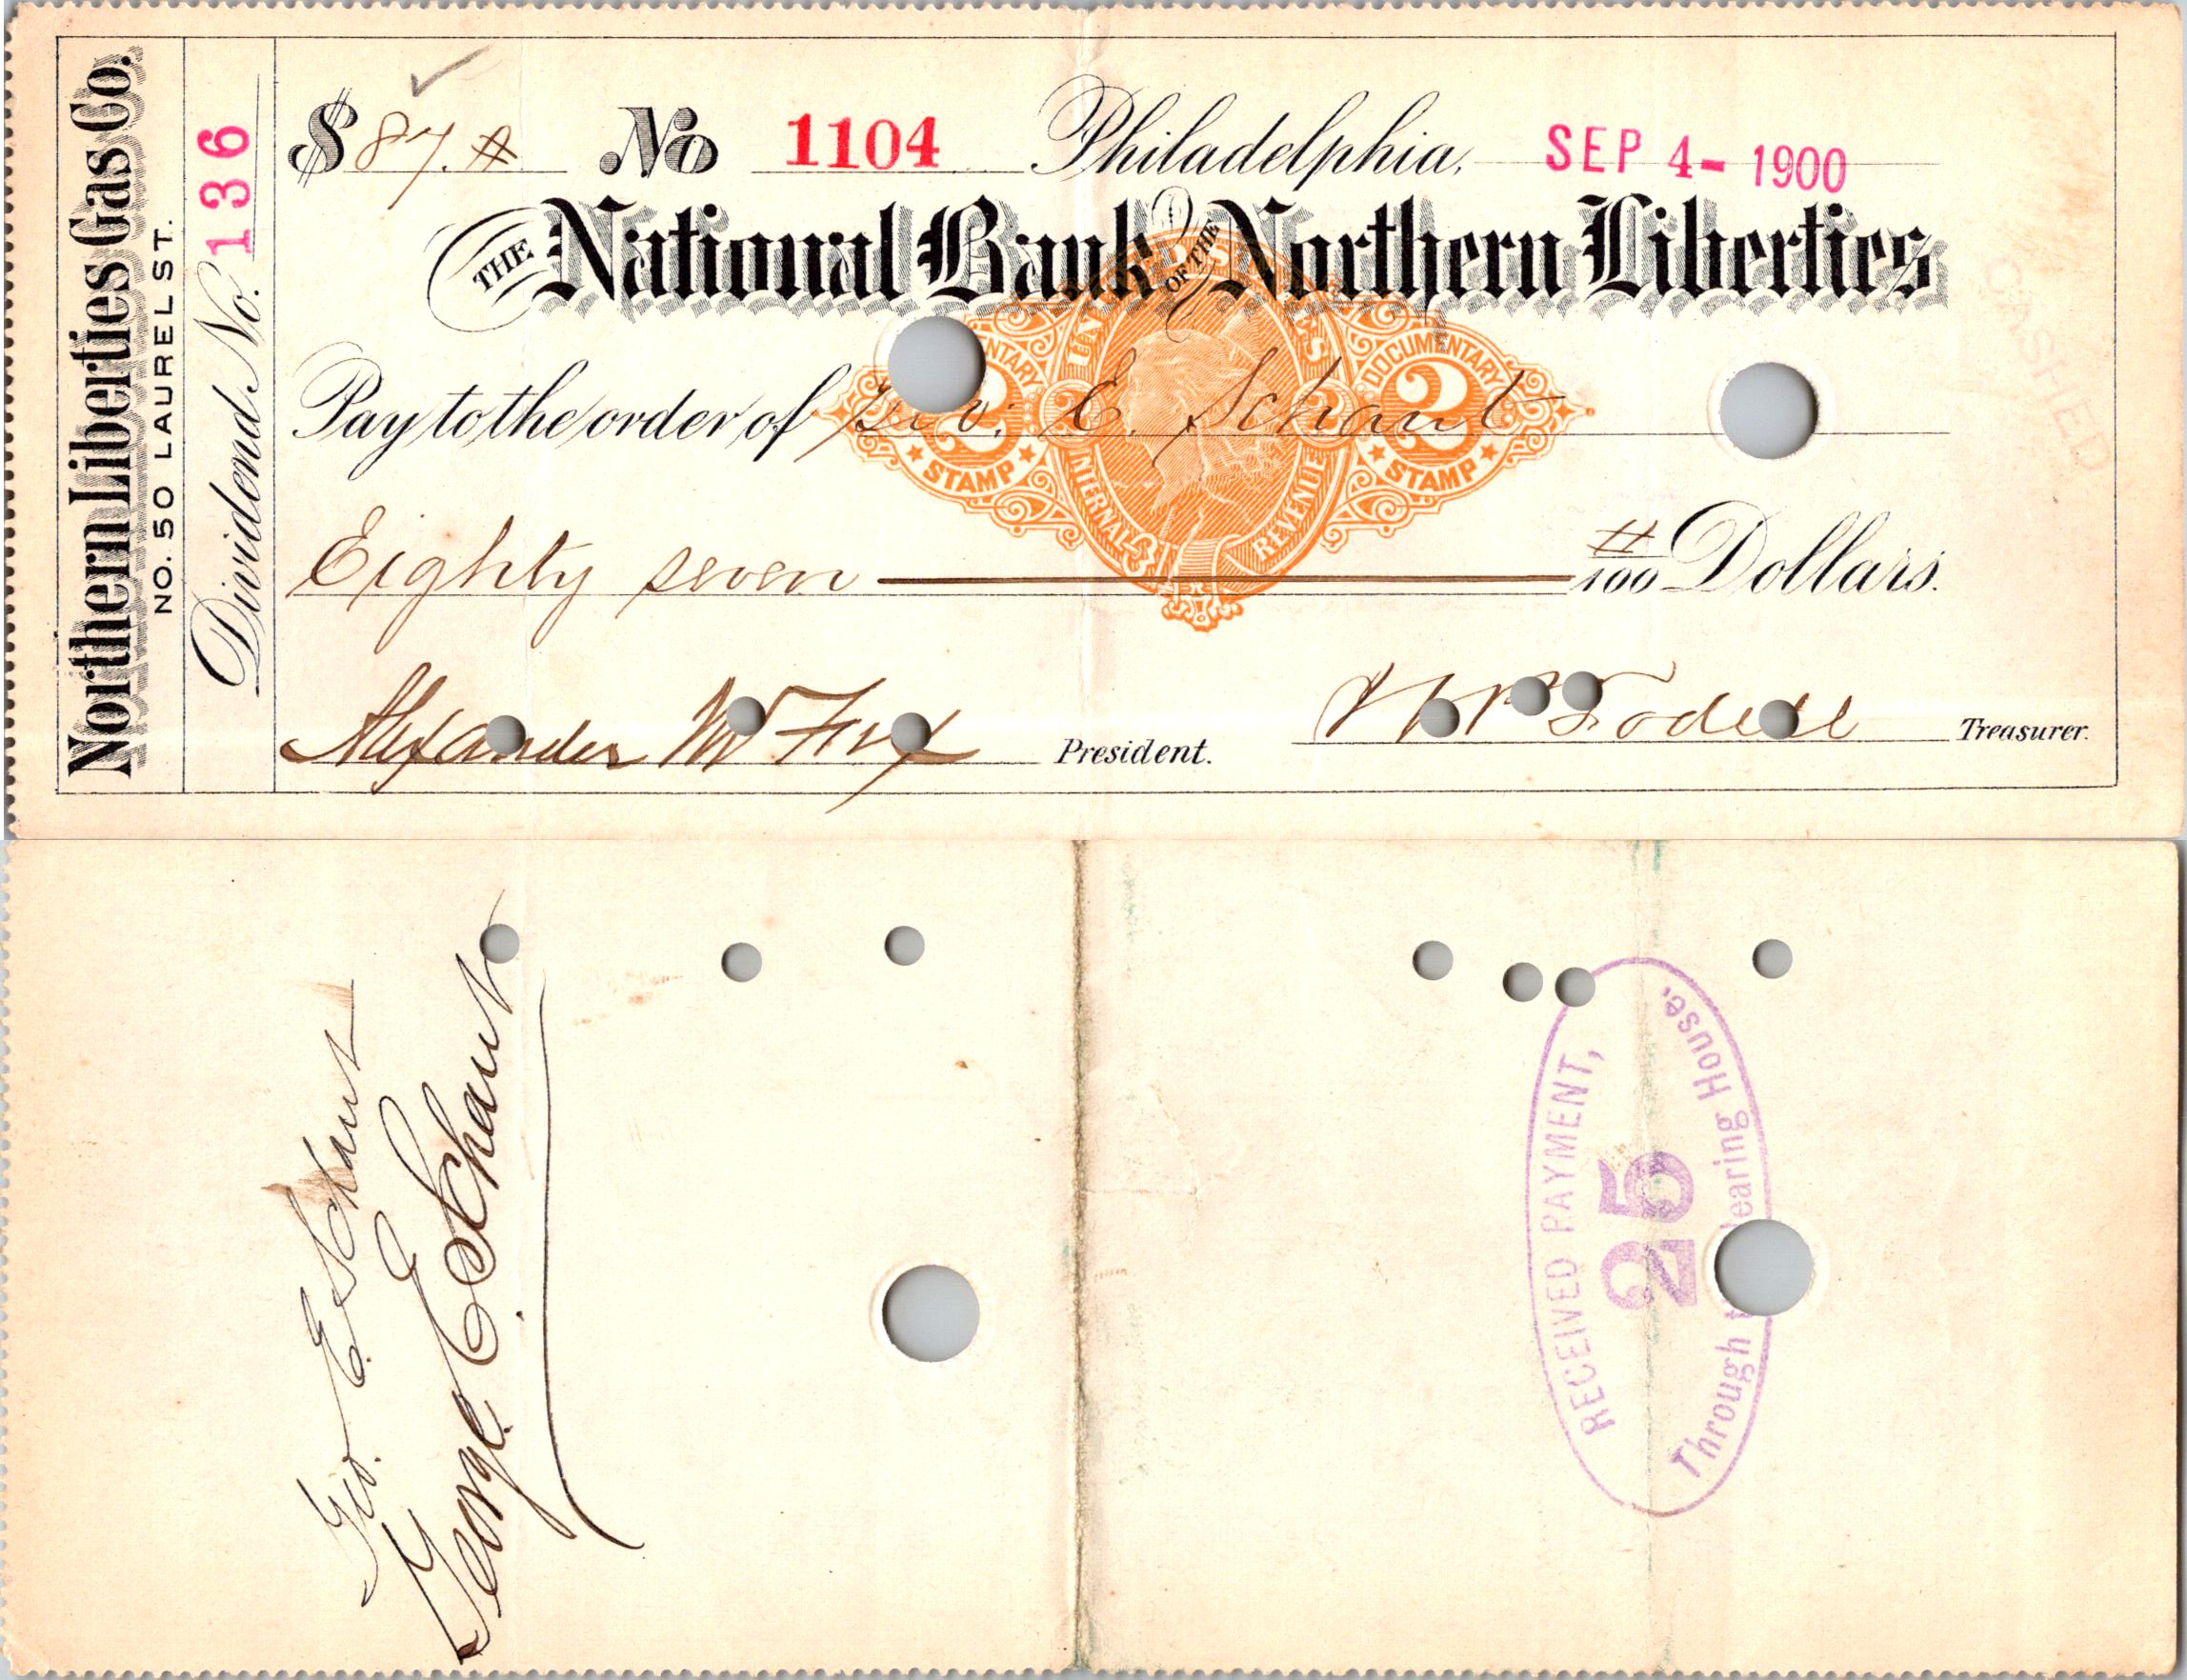 Northern Liberties Gas Co.
NO. 50 LAUREL ST.
Dividend No. 136
$ 87.# No 1104 Philadelphia, SEP 4- 1900
THE National Bank OF THE Northern Liberties
Pay to the order of Geo. E. Schaut
UNITED STATES INTERNAL REVENUE
DOCUMENTARY 2 STAMP
Eighty seven #/100 Dollars.
Alexander W Fox President. Treasurer.
CASHED
Geo. E. Schaut
George E. Schaut
RECEIVED PAYMENT,
25
Through Clearing House.